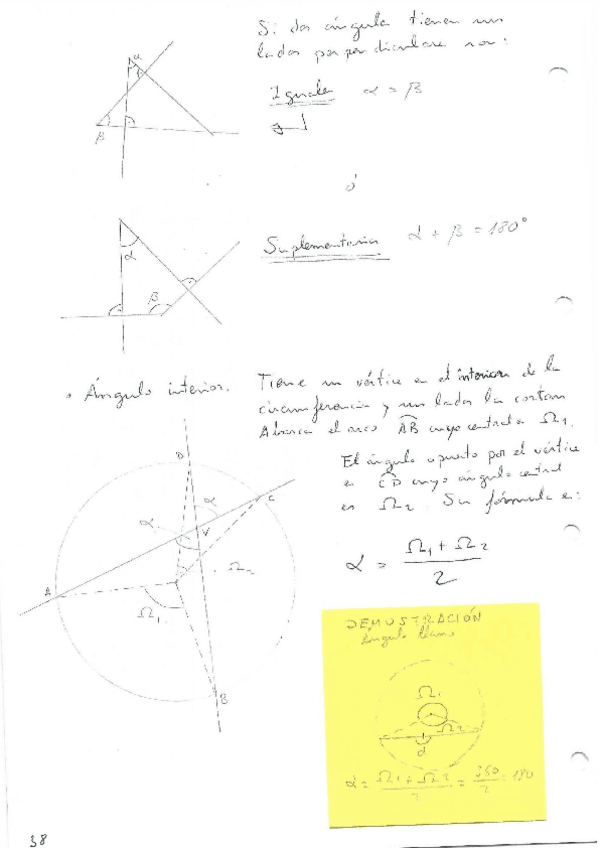 Si dos ángulo tienen sus
lados perpendiculares son:
Iguales α = β
ó
Suplementarios α + β = 180°
α
β
α
β
• Ángulo interior. Tiene un vértice en el interior de la
circunferencia y sus lados la cortan
Abarca el arco AB cuyo central es Ω1.
El ángulo opuesto por el vértice
es CD cuyo ángulo central
es Ω2. Su fórmula es:
α = Ω1 + Ω2 / 2
D
α
C
α
V
Ω2
A
Ω1
B
DEMOSTRACIÓN
Ángulo llano
Ω1
Ω2
α
α = Ω1 + Ω2 / 2 = 360 / 2 = 180
38